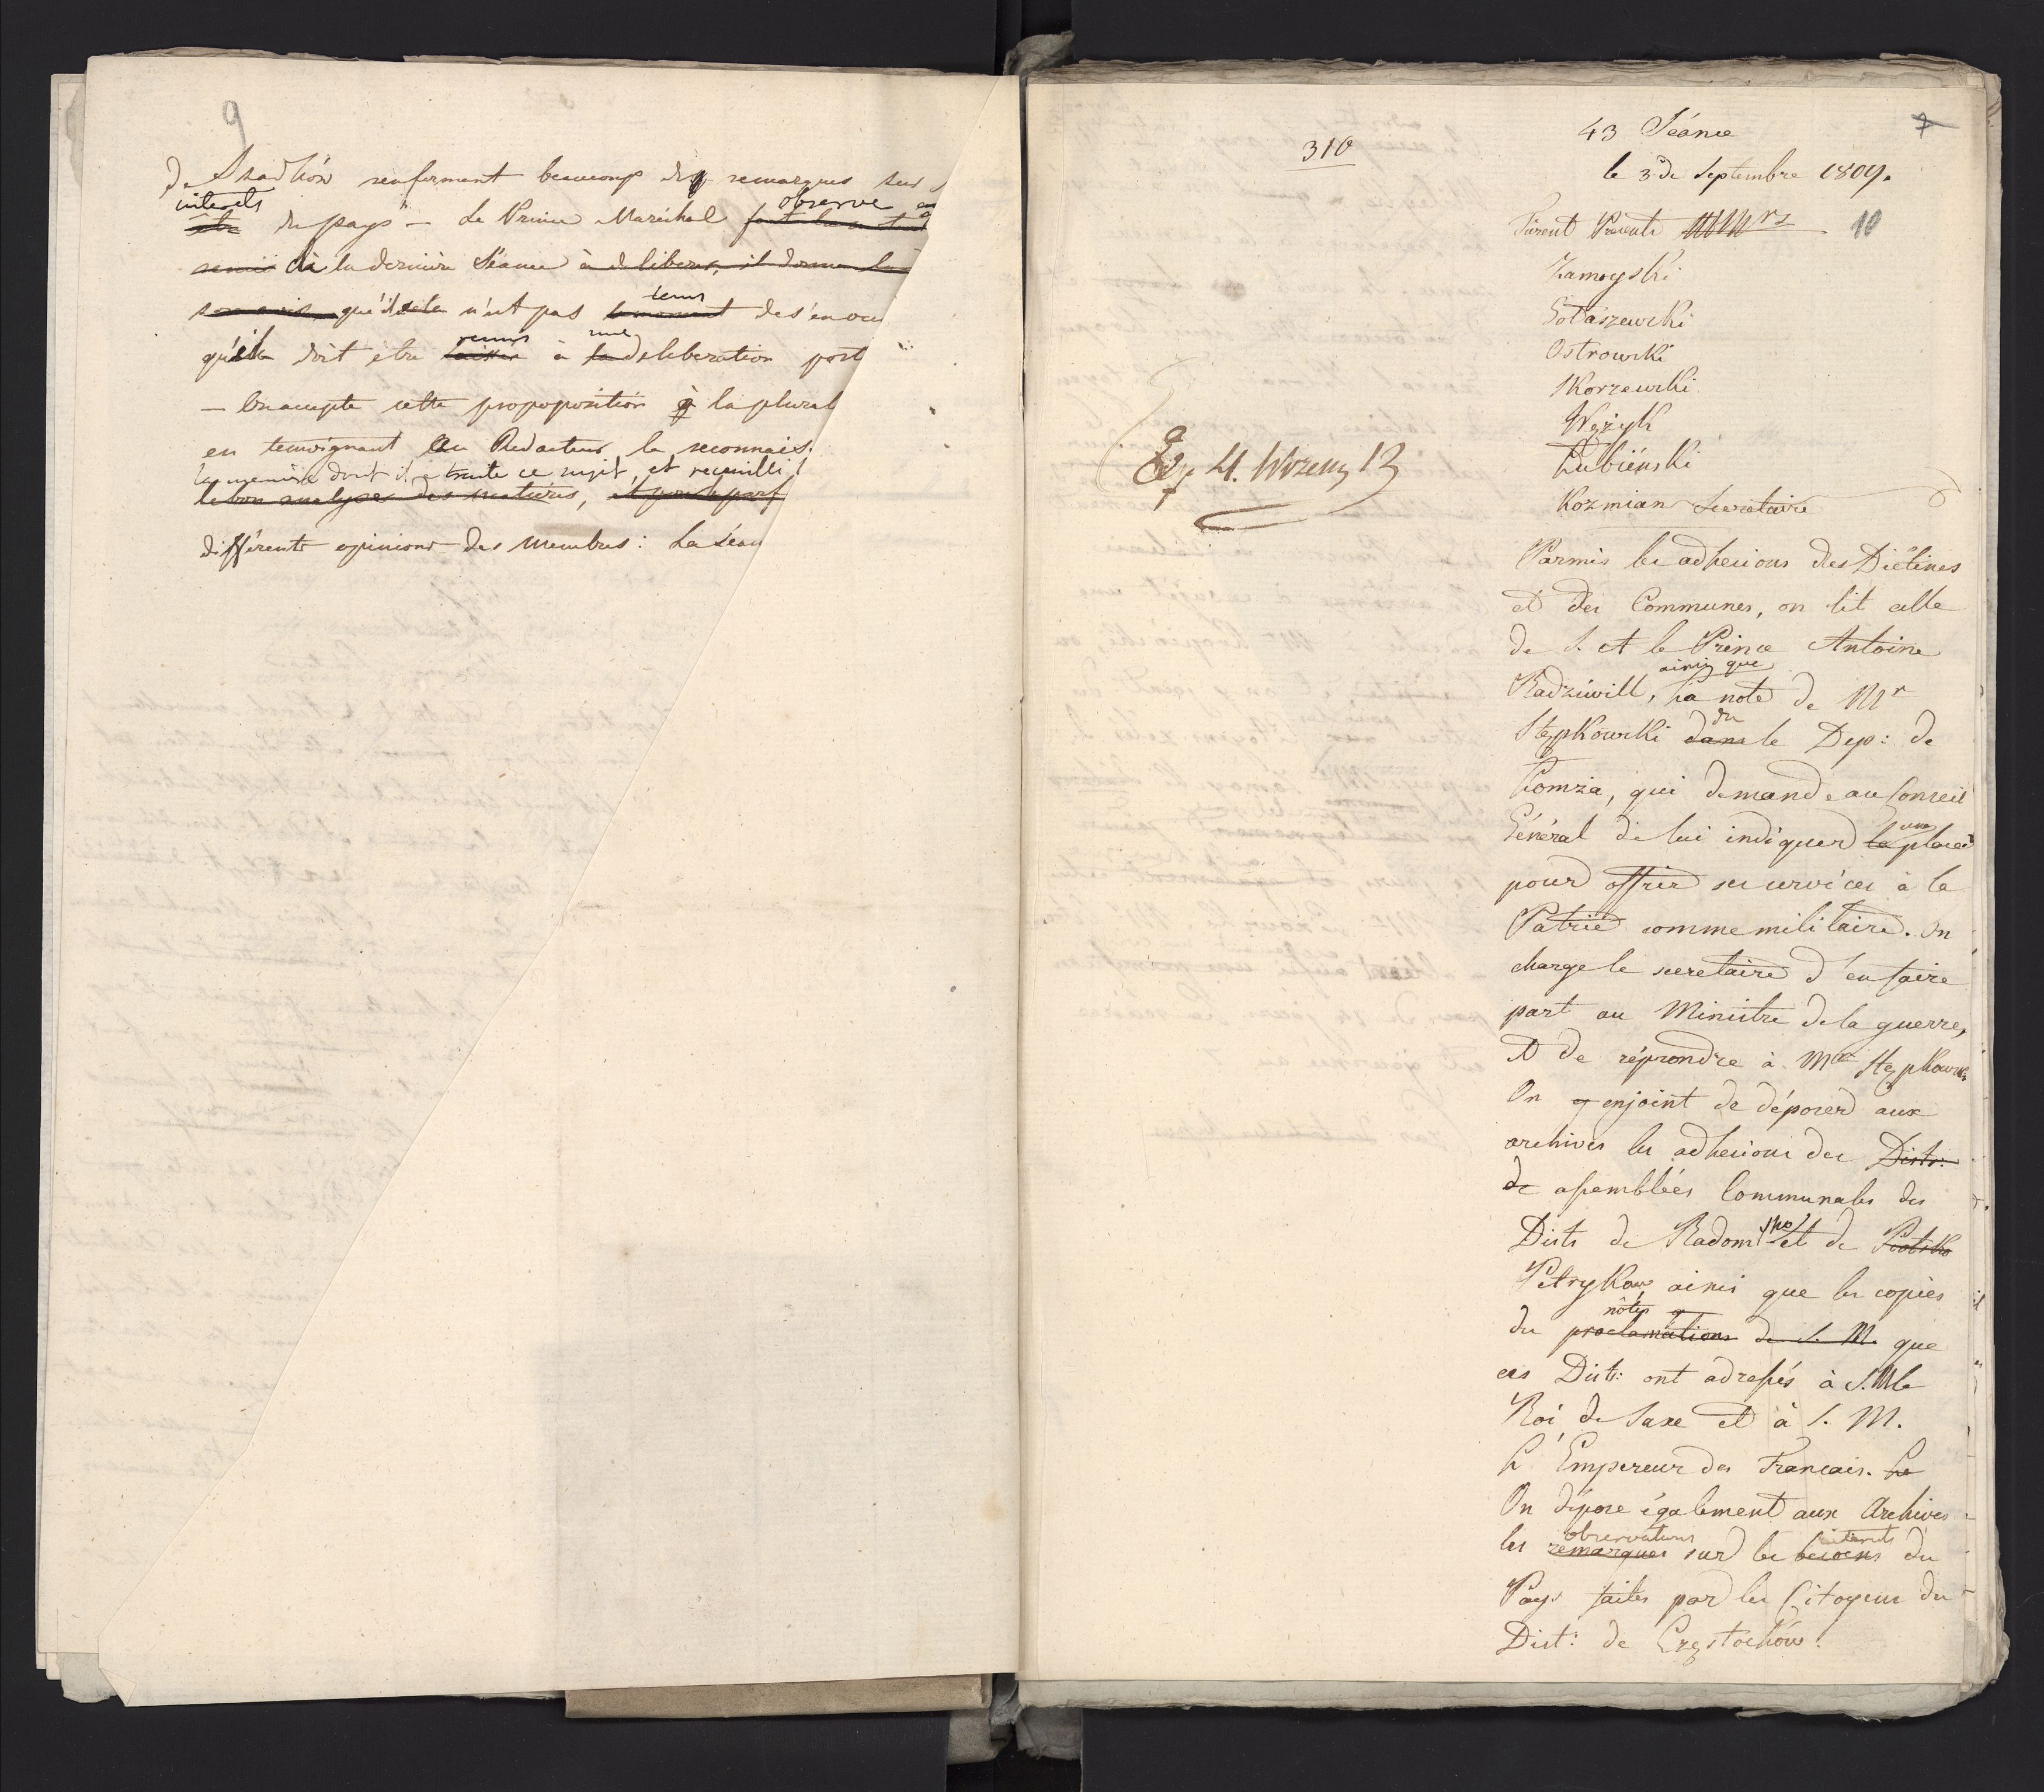 9
de Stadhion renferment beaucoup des remarques sur
interets
du pays — Le Prince Maréchal observe
à la dernière Séance à deliberer, il donne
qu'il n'eut pas tems de s'en occu
qu'il doit être remis à une deliberation post
— On accepte cette propoposition à la plural
en temoignant au Redacteur la reconnais.
la manière dont il a traité ce sujet, et recueilli
le bon analyse des matieres,
différents opinions des Membres : La Séan
310
Exp. 4. Wrzesn 13
43 Séance
7
le 3 de Septembre 1809.
Furent Présents MMrs
10
Zamoyski
Gołaszewski
Ostrowski
Skorzewski
Wężyk
Łubiénski
Kozmian Secretaire
Parmis les adhesions des Diétines
et des Communes, on lit celle
de S. A le Prince Antoine
ainsi que
Radziwill, la note de Mr
du
Stępkowski dans le Dep: de
Łomza, qui demande au Conseil
une
Général de lui indiquer la place
pour offrir ses services à la
Patrie comme militaire. On
charge le secretaire d'en faire
part au Ministre de la guerre,
et de répondre à Mr Stępkowski
On enjoint de déposer aux
archives les adhesions des Distr:
de assemblées Communales des
Distr de Radomsko et de
Petrykow, ainsi que les copies
nôtes
du proclamations de S. M. que
ces Distr: ont adressés à S. M le
Roi de Saxe et à S. M.
L'Empereur des Francais. Le
On dépose également aux Archives
observations interets
les remarques sur les besoins du
Pays faites par les Citoyens du
Dist: de Częstochów.